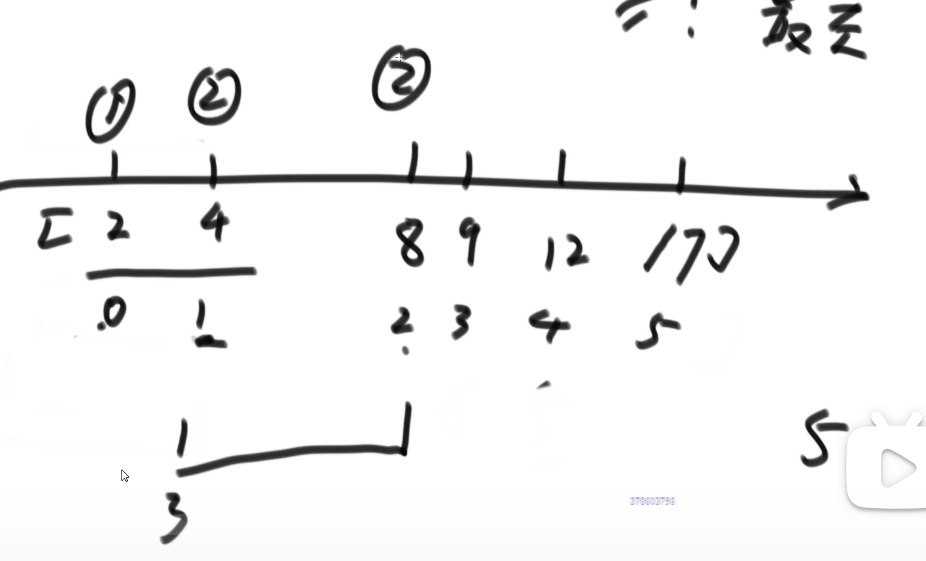 = ?
① ② ②
[ 2 4 8 9 12 17]
0 1 2 3 4 5
5
3
378603796